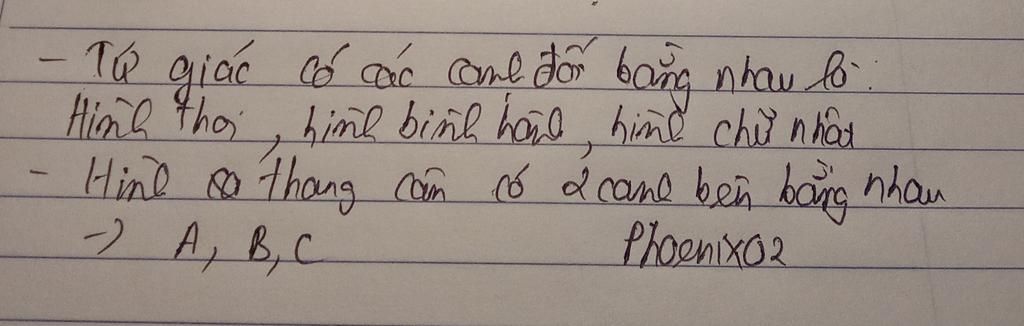 - Tứ giác có các cạnh đối bằng nhau là:
Hình thoi, hình bình hành, hình chữ nhật
- Hình thang cân có 2 cạnh bên bằng nhau
-> A, B, C Phoenix02